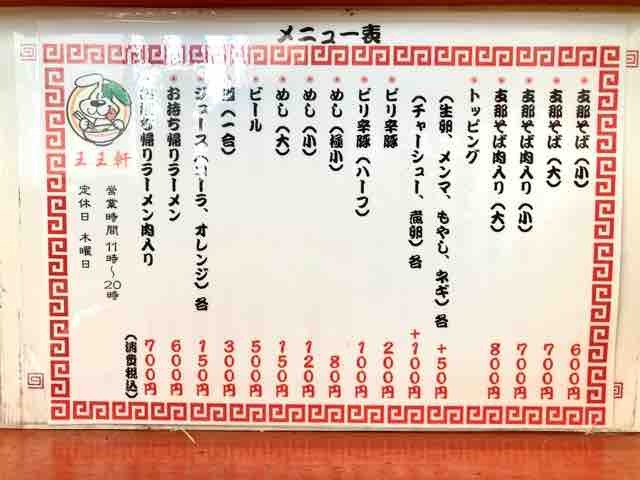 メニュー表
支那そば(小) 600円
支那そば(大) 700円
支那そば肉入り(小) 700円
支那そば肉入り(大) 800円
トッピング
(生卵、メンマ、もやし、ネギ)各 +50円
(チャーシュー、煮卵)各 +100円
ピリ辛豚 200円
ピリ辛豚(ハーフ) 100円
めし(極小) 80円
めし(小) 120円
めし(大) 150円
ビール 500円
酒(一合) 300円
ジュース(コーラ、オレンジ)各 150円
お持ち帰りラーメン 600円
お持ち帰りラーメン肉入り 700円
(消費税込)
王王軒
営業時間 11時〜20時
定休日 木曜日